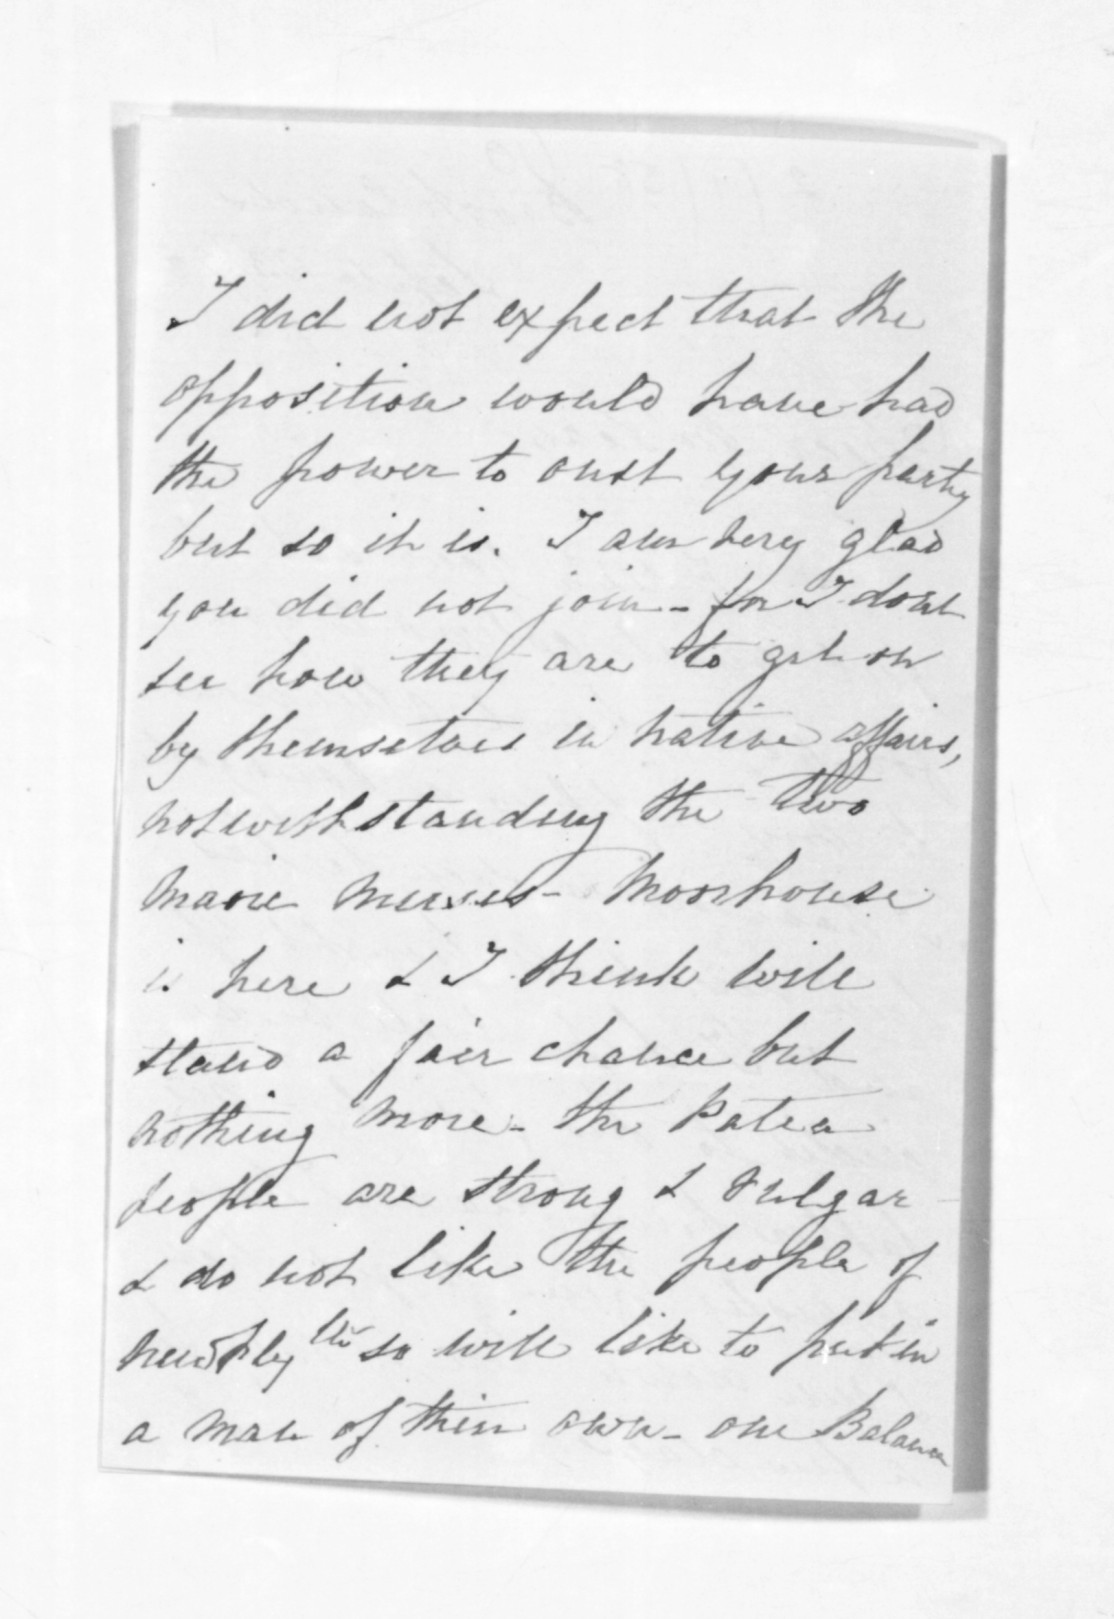 I did not expect that the
opposition would have had
the power to oust your party
but so it is. I am very glad
you did not join - for I dont
see how they are to get on
by themselves in native affairs,
notwithstanding the two
maori nurses - Moorhouse
is here & I think will
stand a fair chance but
nothing more - the Patea
people are strong & vulgar -
& do not like the people of
New Ply<sup>th</sup> so will like to put in
a man of their own - one Balance